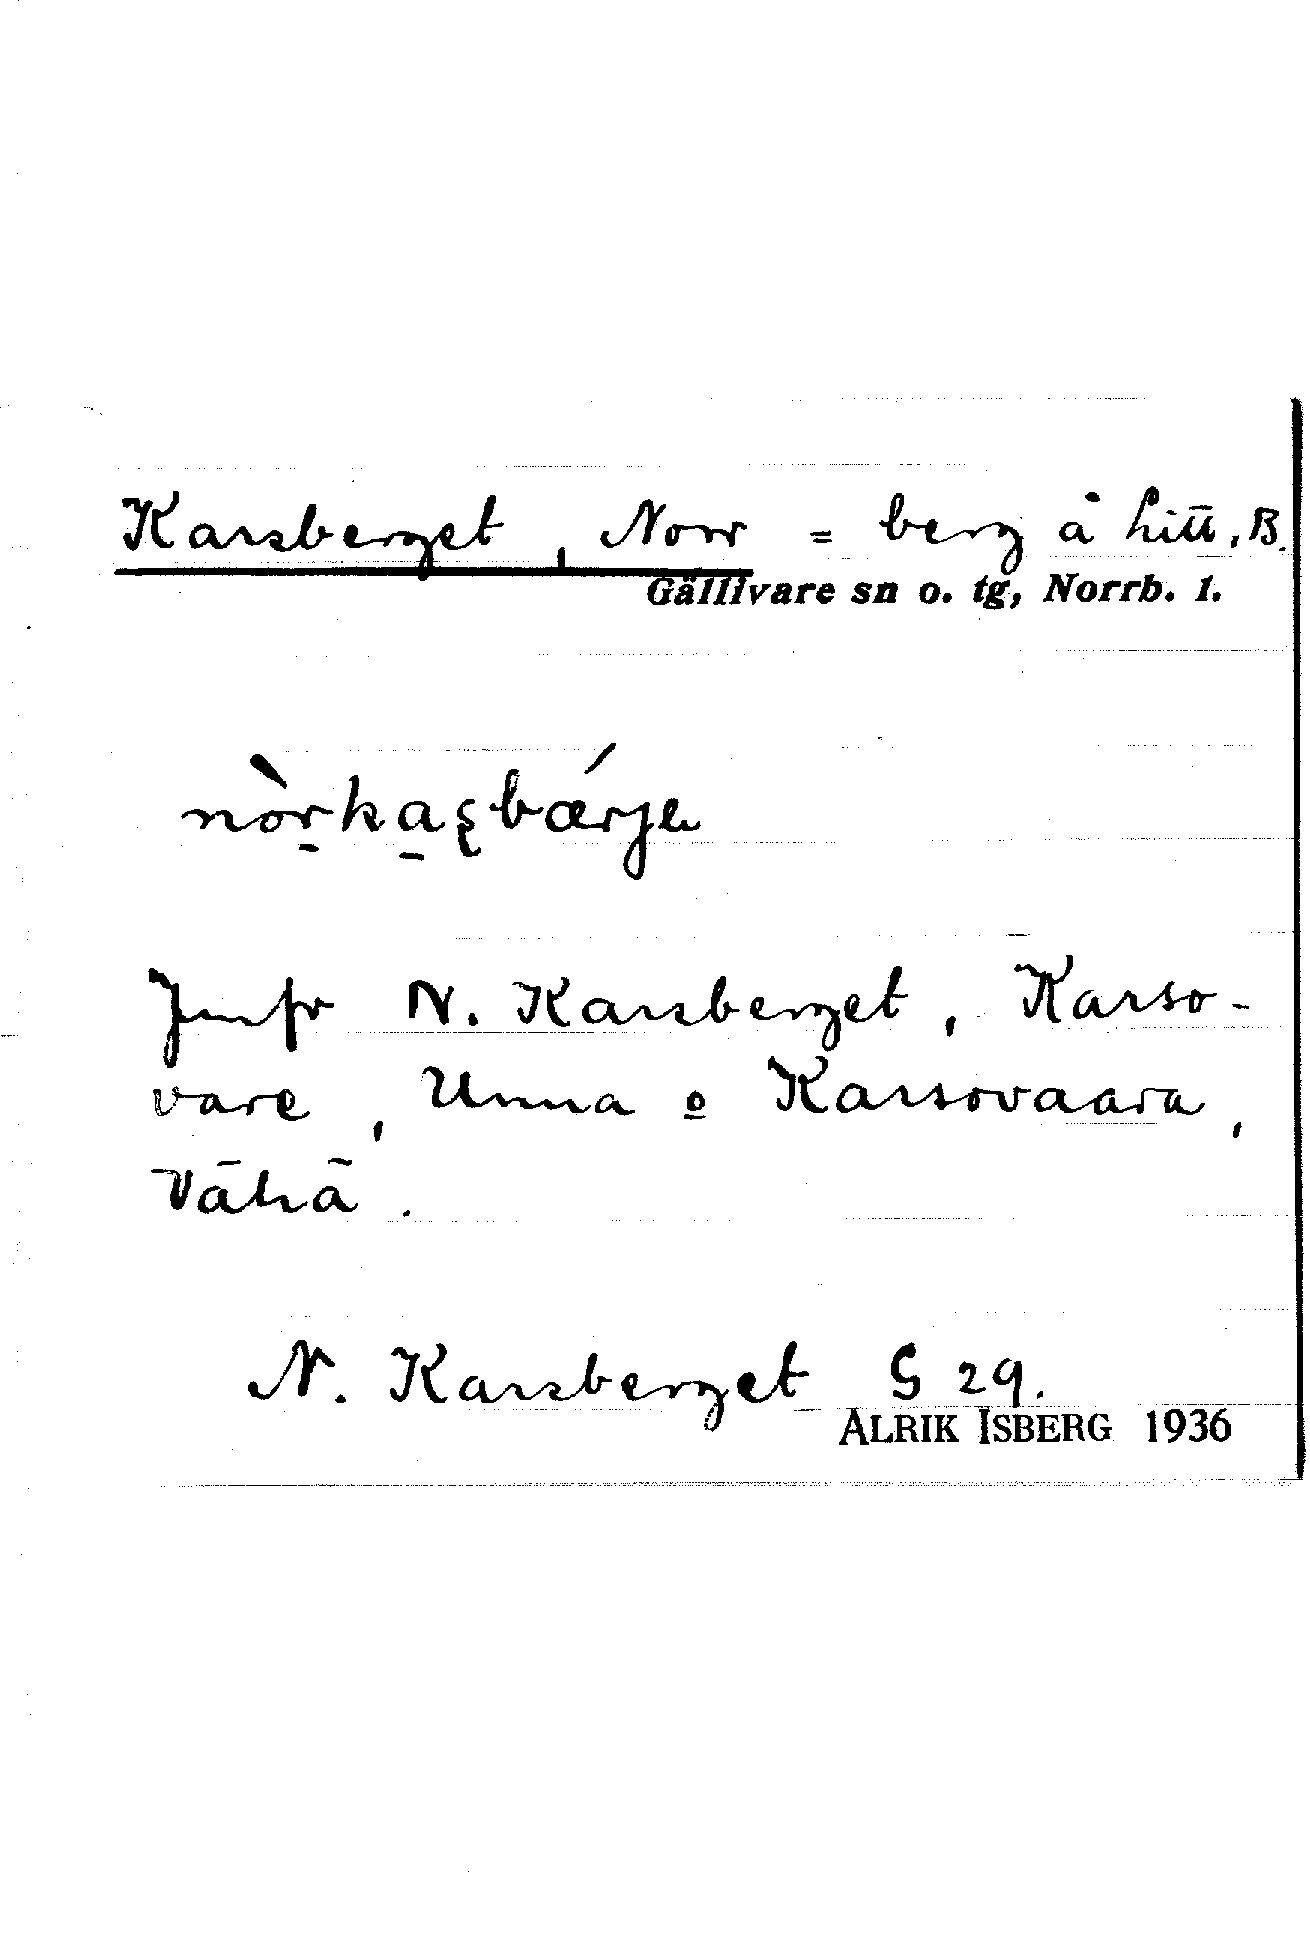 Karsberget, Norr = berg å hitt, B.
Gällivare sn o. tg, Norrb. l.
nòrkasbærje
Jmfr N. Karsberget, Karso-
vare, Unna o Karsovaara,
Vähä.
N. Karsberget S 29.
ALRIK ISBERG 1936